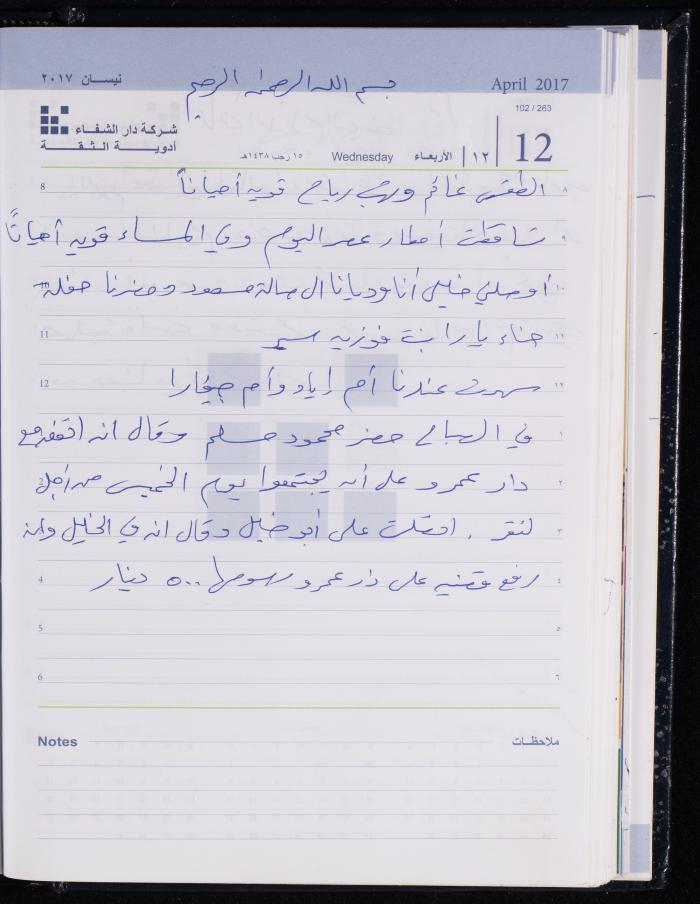 نيسان ٢٠١٧
بسم الله الرحمن الرحيم
April 2017
102 / 263
شركة دار الشفاء
أدوية الثقة
١٥ رجب ١٤٣٨هـ Wednesday الأربعاء ١٢ 12
8 الطقس غائم وهبت رياح قوية أحياناً ٨
تساقطت أمطار عصر اليوم وفي المساء قوية أحياناً ٩
أوصلني خليل أنا وديانا الى صالة مسعود وحضرنا حفلة ١٠
11 حناء يارا بنت فوزيه ١١
12 سهرت عندنا أم إياد وأم ١٢
في الصباح حضر محمود مسلم وقال انه اتفق مع ١
2 دار عمرو على أن يجتمعوا يوم الخميس من أجل ٢
. اتصلت على أبو خليل وقال انه في الخليل وانه ٣
4 رفع قضيه على دار عمرو رسومها ٥٠٠ دينار ٤
5 ٥
6 ٦
Notes ملاحظات